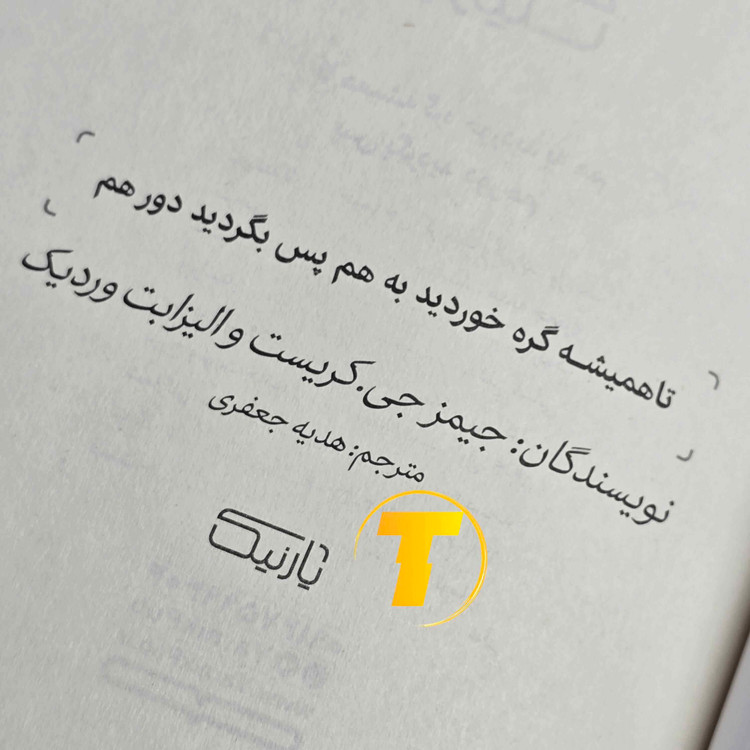 تاهمیشه گره خوردید به هم پس بگردید دور هم
نویسندگان: جیمز جی. کریست و الیزابت وردیک
مترجم: هدیه جعفری
یارنیک
T